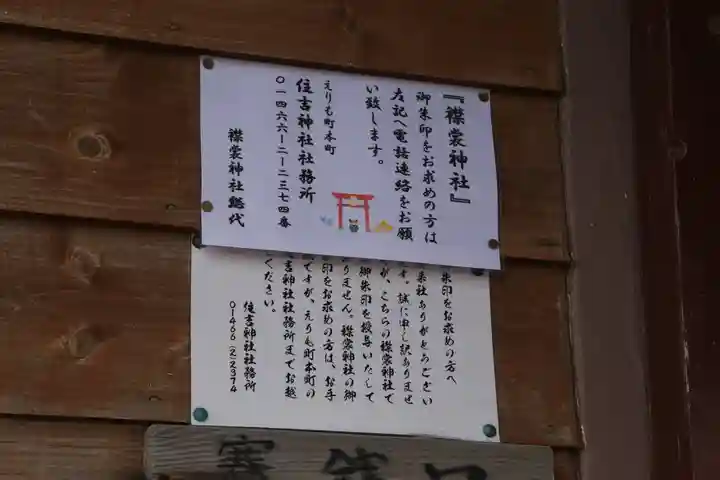 『襟裳神社』
御朱印をお求めの方は
左記へ電話連絡をお願
い致します。
えりも町本町
住吉神社社務所
〇一四六六ー二ー二三七四番
襟裳神社総代
朱印をお求めの方へ
来社ありがとうござい
す。誠に申し訳ありませ
が、こちらの襟裳神社で
御朱印を授与いたして
りません。襟裳神社の御
印をお求めの方は、お手
ですが、えりも町本町の
吉神社社務所までお越
ください。
住吉神社社務所
01466(2)2374